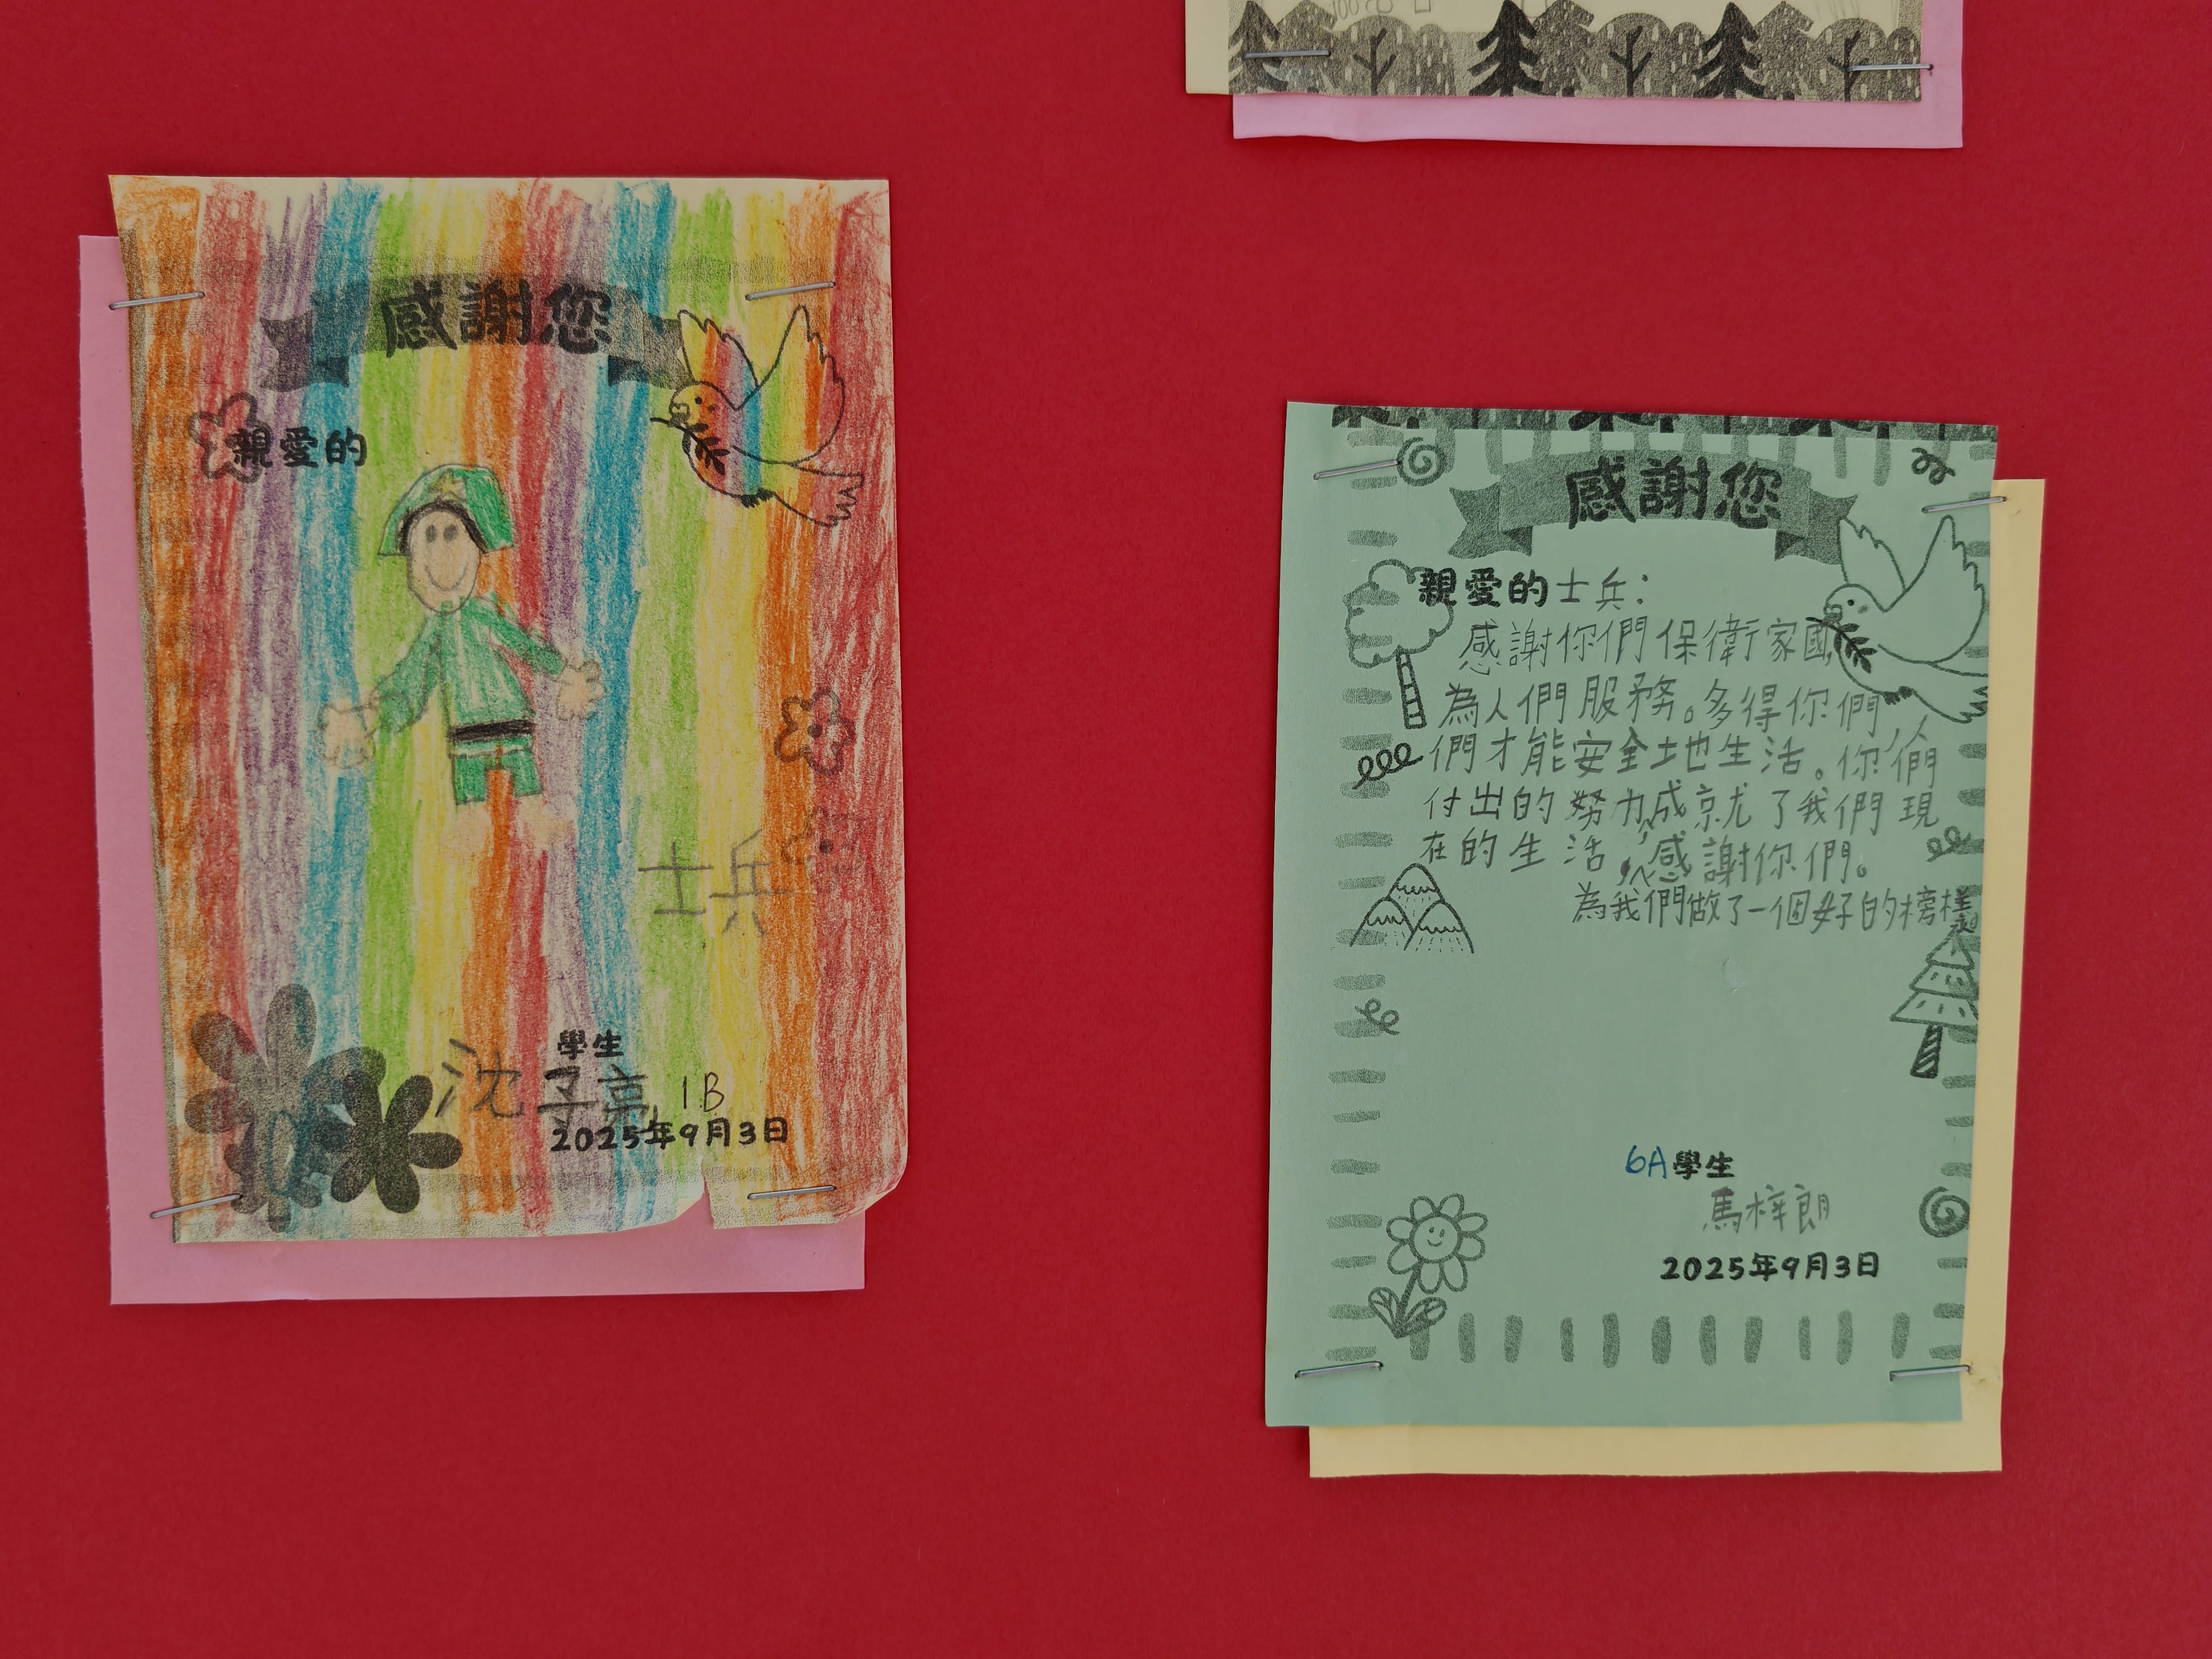 感謝您
親愛的
士兵
學生
沈子亮 1B
2025年9月3日
感謝您
親愛的士兵：
感謝你們保衛家國
為人們服務。多得你們，人
們才能安全土地生活。你們
付出的努力成就了我們現
在的生活，感謝你們。
為我們做了一個好的榜樣
6A學生
馬梓朗
2025年9月3日